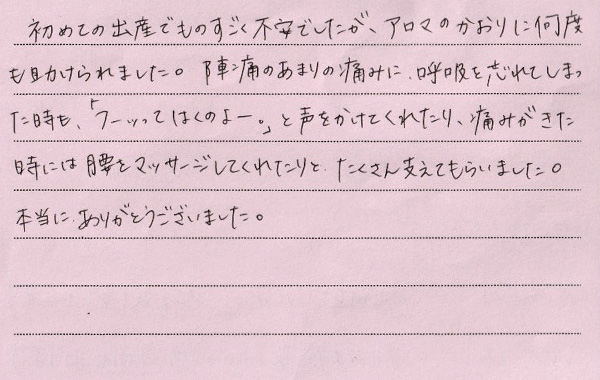 初めての出産でものすごく不安でしたが、アロマのかおりに何度
も助けられました。陣痛のあまりの痛みに、呼吸を忘れてしまっ
た時も、「フーッってはくのよー。」と声をかけてくれたり、痛みがきた
時には腰をマッサージしてくれたりと、たくさん支えてもらいました。
本当に、ありがとうございました。